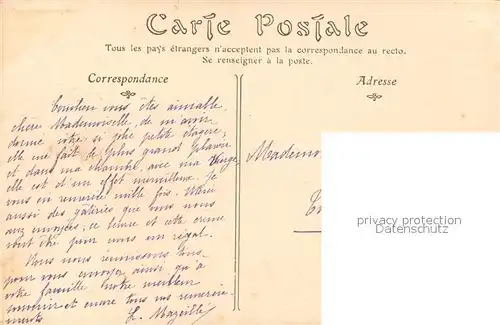 Carte Postale
Tous les pays étrangers n'acceptent pas la correspondance au recto.
Se renseigner à la poste.
Correspondance
Adresse
Combien vous êtes aimable,
chère Mademoiselle, de m'avoir
donné votre si jolie petite étagère,
elle me fait le plus grand plaisir
et dans ma chambre, avec ma Vierge,
elle est d'un effet merveilleux. Je
vous en remercie mille fois. Merci
aussi des gâteries que vous nous
avez envoyées; ce beurre et cette crème
vont être pour nous un régal.
Nous nous réunissons tous
pour vous envoyer, ainsi qu'à
votre famille notre meilleur
souvenir et encore tous nos remercie-
ments.
Mademoi
privacy protection
Datenschutz